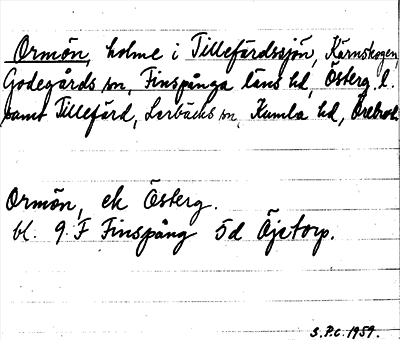 Ormön, holme i Tillefärdssjön, Kärnskogen,
Godegårds sn, Finspånga läns hd, Österg. l.
samt Tillefärd, Lerbäcks sn, Kumla hd, Örebro l.
Ormön, ek Österg.
bl. 9 F Finspång 5d Öjetorp.
S.P.C. 1959.